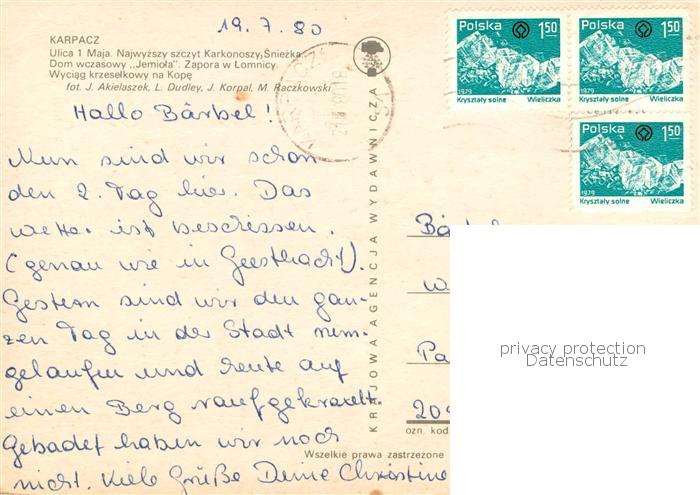 19.7.80
KARPACZ
Ulica 1 Maja. Najwyższy szczyt Karkonoszy, Śnieżka
Dom wczasowy „Jemioła". Zapora w Łomnicy.
Wyciąg krzesełkowy na Kopę
fot. J. Akielaszek, L. Dudley, J. Korpal, M. Raczkowski
Hallo Bärbel!
Nun sind wir schon
den 2. Tag hier. Das
Wetter ist beschissen.
(genau wie in Geesthacht).
Gestern sind wir den gan-
zen Tag in der Stadt rum-
gelaufen und heute auf
einen Berg raufgekraxelt.
Gebadet haben wir noch
nicht. Viele Grüße Deine Christine
KRAJOWA AGENCJA WYDAWNICZA
Polska 1,50
1979
Kryształy solne Wieliczka
Polska 1,50
1979
Kryształy solne Wieliczka
Polska 1,50
1979
Kryształy solne Wieliczka
Bärb
W
Pa
204
ozn. kod
Wszelkie prawa zastrzeżone
privacy protection
Datenschutz